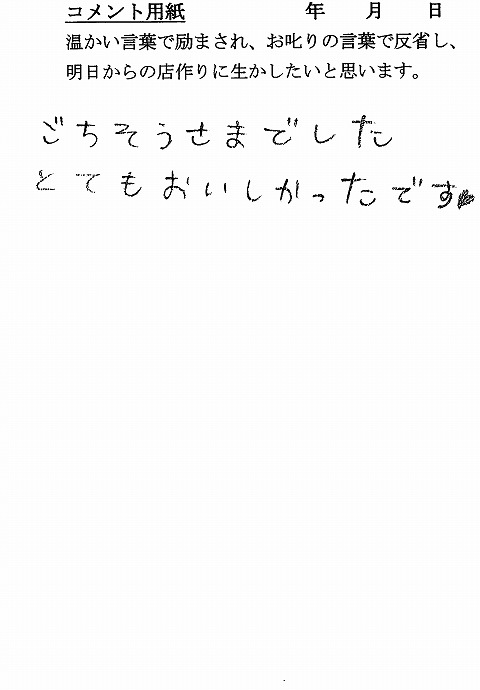 コメント用紙 年 月 日
温かい言葉で励まされ、お叱りの言葉で反省し、
明日からの店作りに生かしたいと思います。
ごちそうさまでした
とてもおいしかったです♥